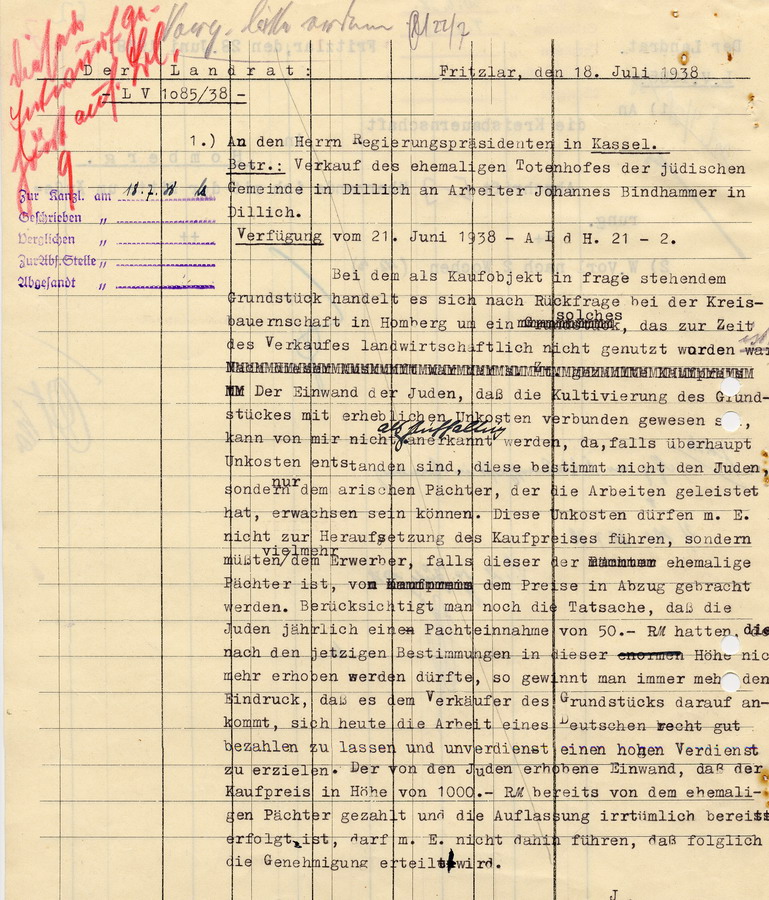 Der Landrat:
Fritzlar, den 18. Juli 1938
- L V 1085/38 -
1.) An den Herrn Regierungspräsidenten in Kassel.
Betr.: Verkauf des ehemaligen Totenhofes der jüdischen
Zur Kanzl. am 18.7.38
Gemeinde in Dillich an Arbeiter Johannes Bindhammer in
Geschrieben "
Dillich.
Verglichen "
Verfügung vom 21. Juni 1938 - A I d H. 21 - 2.
Zur Abs. Stelle "
Abgesandt "
Bei dem als Kaufobjekt in frage stehendem
Grundstück handelt es sich nach Rückfrage bei der Kreis-
solches
bauernschaft in Homberg um ein , das zur Zeit
des Verkaufes landwirtschaftlich nicht genutzt worden war ist
Der Einwand der Juden, daß die Kultivierung des Grund-
stückes mit erheblichen Unkosten verbunden gewesen s ,
kann von mir nicht als stichhaltig anerkannt werden, da, falls überhaupt
Unkosten entstanden sind, diese bestimmt nicht den Juden,
nur
sondern dem arischen Pächter, der die Arbeiten geleistet
hat, erwachsen sein können. Diese Unkosten dürfen m. E.
nicht zur Heraufsetzung des Kaufpreises führen, sondern
vielmehr
müßten/dem Erwerber, falls dieser der ehemalige
Pächter ist, von Kaufpreis dem Preise in Abzug gebracht
werden. Berücksichtigt man noch die Tatsache, daß die
Juden jährlich einen Pachteinnahme von 50.- RM hatten, die
nach den jetzigen Bestimmungen in dieser enormen Höhe nic
mehr erhoben werden dürfte, so gewinnt man immer meh den
Eindruck, daß es dem Verkäufer des Grundstücks darauf an-
kommt, sich heute die Arbeit eines Deutschen recht gut
bezahlen zu lassen und unverdienst einen hohen Verdienst
zu erzielen. Der von den Juden erhobene Einwand, daß der
Kaufpreis in Höhe von 1000.- RM bereits von dem ehemali-
gen Pächter gezahlt und die Auflassung irrtümlich bereits
erfolgt ist, darf m. E. nicht dahin führen, daß folglich
die Genehmigung erteilt wird.
J